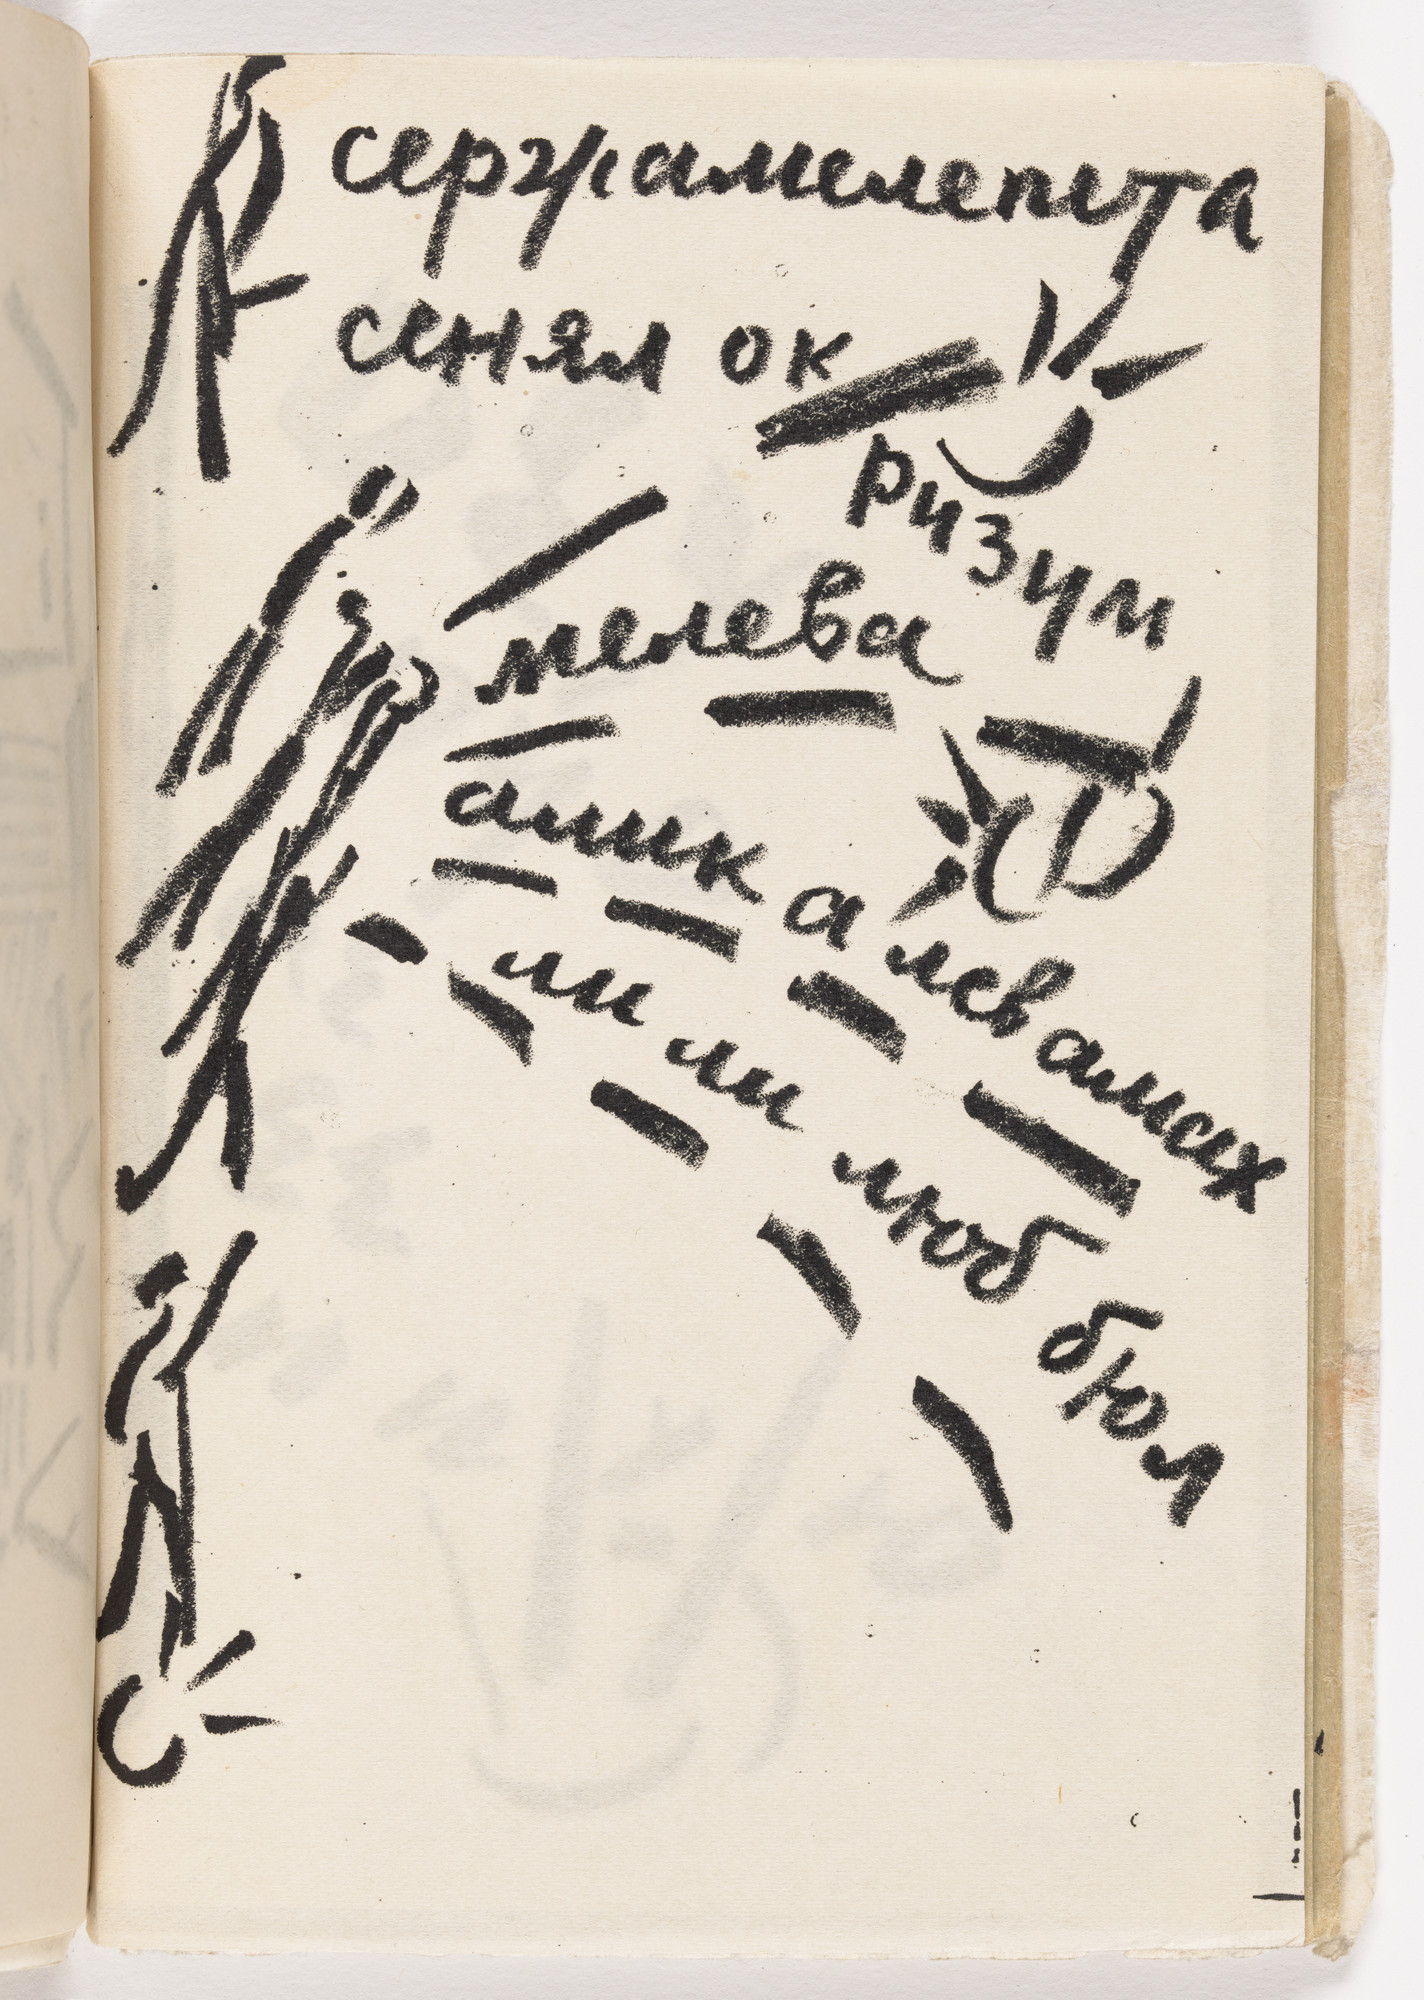 сержамелепета
сенял ок
ризум
мелева
алик а левамах
ли ли люб бюл